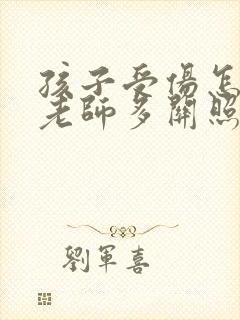 孩子受傷怎
老師多關照
劉軍喜